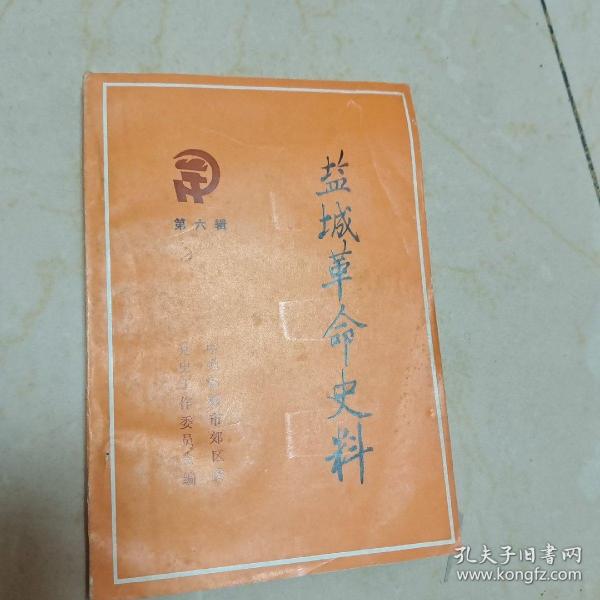 盐城革命史料
第六辑
市郊区
史工作委员会编
孔夫子旧書网
www.kongfz.com